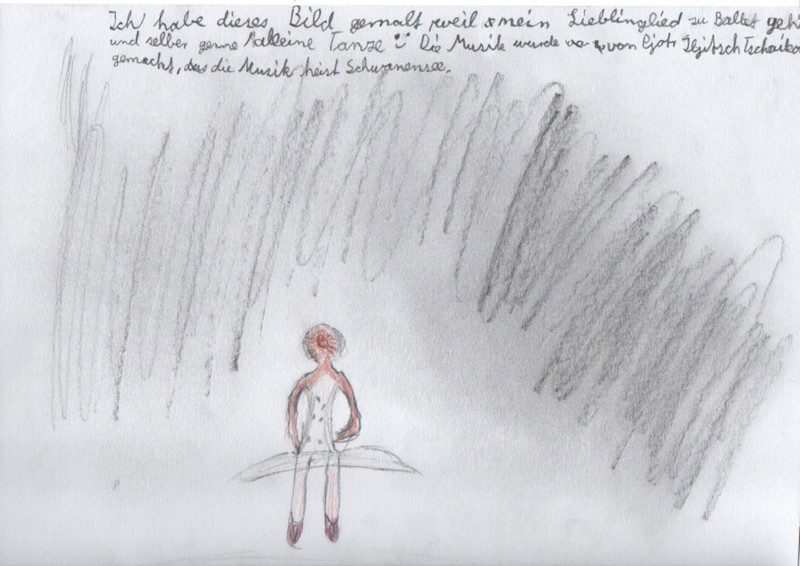 Ich habe dieses Bild gemalt weil mein Lieblinglied zu Ballet geh
und selber gerne alleine Tanze :) Die Musik wurde von Pjotr Iljitsch Tschaiko
gemacht, das die Musik heist Schwanensee.